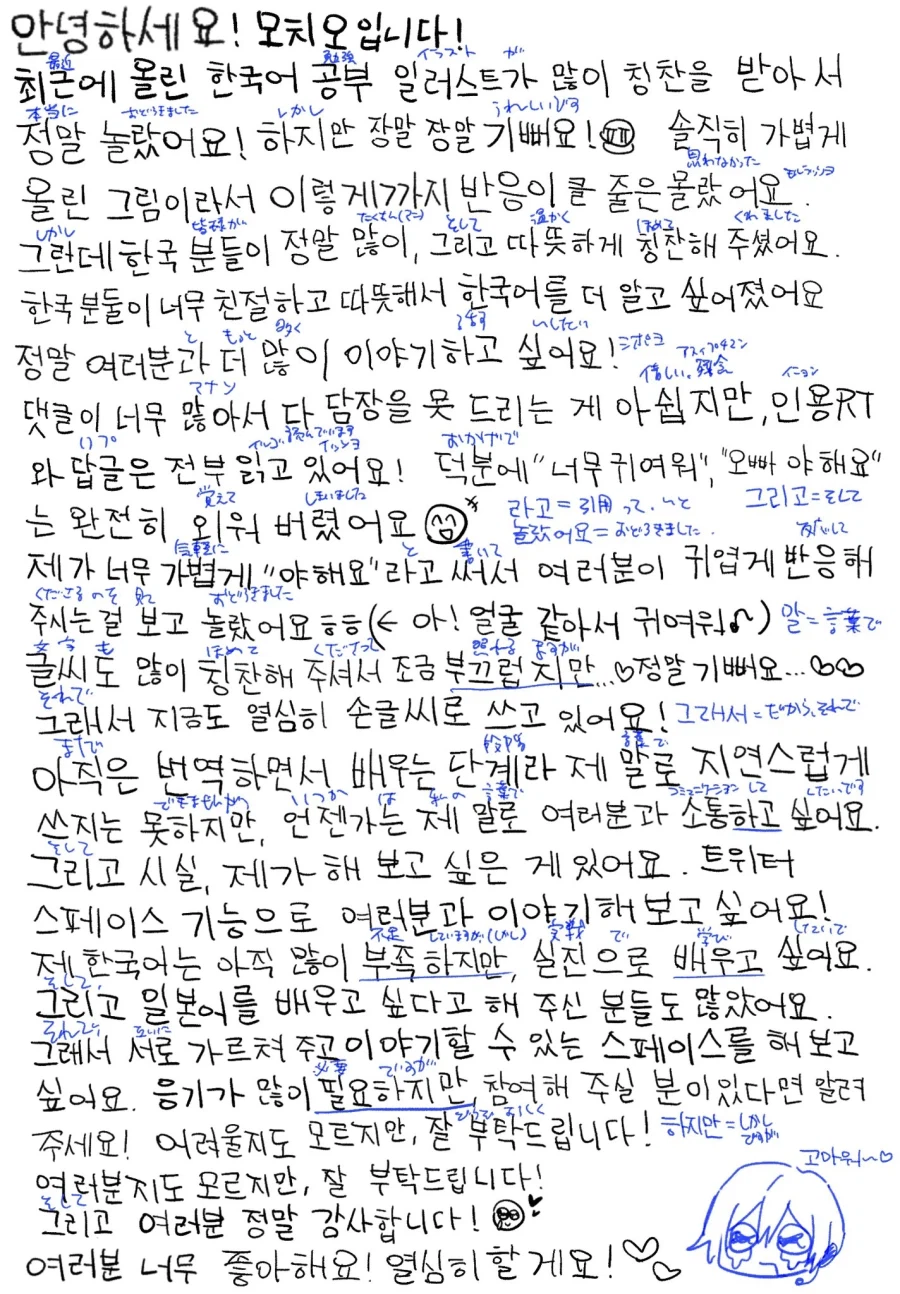 안녕하세요! 모치오입니다!
最近 勉強 イラスト が
최근에 올린 한국어 공부 일러스트가 많이 칭찬을 받아서
本当に おどろきました しかし うれしいです
정말 놀랐어요! 하지만 장말 장말 기뻐요! 솔직히 가볍게
思わなかった
올린 그림이라서 이렇게까지 반응이 클 줄은 몰랐어요.
しかし 皆様が たくさん(マニ) そして 温かく ほめる くれました
그런데 한국 분들이 정말 많이, 그리고 따뜻하게 칭찬해 주셨어요.
한국분둘이 너무 친절하고 따뜻해서 한국어를 더 알고 싶어졌어요
と もっと 多く する いしたい
정말 여러분과 더 많이 이야기하고 싶어요! シオペヨ
マナソ 惜しい。残念 イニョン
댓클이 너무 많아서 다 담장을 못 드리는 게 아쉽지만, 인용RT
読んでいます イッソヨ おかげで
와 답글은 전부 읽고 있어요! 덕분에 "너무 귀여워", "오빠 야해요"
覚えて しまいました 라고=引用って、いと 그리고=そして
는 완전히 외워 버렸어요 놀랐어요=おどろきました.
気軽に と 書いて 反応して
제가 너무 가볍게 "야해요"라고 써서 여러분이 귀엽게 반응해
くださるのを 見て おどろきました
주시는걸 보고 놀랐어요ㅎㅎ(← 아! 얼굴 같아서 귀여워♪) 말=言葉で
文字 も ほめて くださって 照れる ますが
글씨도 많이 칭찬해 주셔서 조금 부끄럽지만...♡정말 기뻐요...♡♡
それで
그래서 지금도 열심히 손글씨로 쓰고 있어요! 그래서=だから、それで
まだで 段階 言葉で
아직은 번역하면서 배우는 단계라 제 말로 지연스럽게
できませんが いつか は 私の 言葉で コミュニケーション して したいです
쓰지는 못하지만, 언젠가는 제 말로 여러분과 소통하고 싶어요.
そして
그리고 시실, 제가 해 보고 싶은 게 있어요. 트위터
스페이스 기능으로 여러분과 이야기해 보고 싶어요!
不足 していますが(しかし) 実戦 で 学び したいで
제 한국어는 아직 많이 부족하지만, 실진으로 배우고 싶어요.
そして、
그리고 일본어를 배우고 싶다고 해 주신 분들도 많았어요.
それで、 互いに
그래서 서로 가르쳐 주고 이야기할 수 있는 스페이스를 해 보고
必要 ですが
싶어요. 응기가 많이 필요하지만, 참여해 주실 분이 있다면 알려
どうぞ よろしく
주세요! 어려울지도 모르지만, 잘 부탁드립니다! 하지만=しかし ですが
여러분지도 모르지만, 잘 부탁드립니다!
そして
그리고 여러분 정말 감사합니다!
고마워~♡
여러분 너무 좋아해요! 열심히 할게요! ♡♡